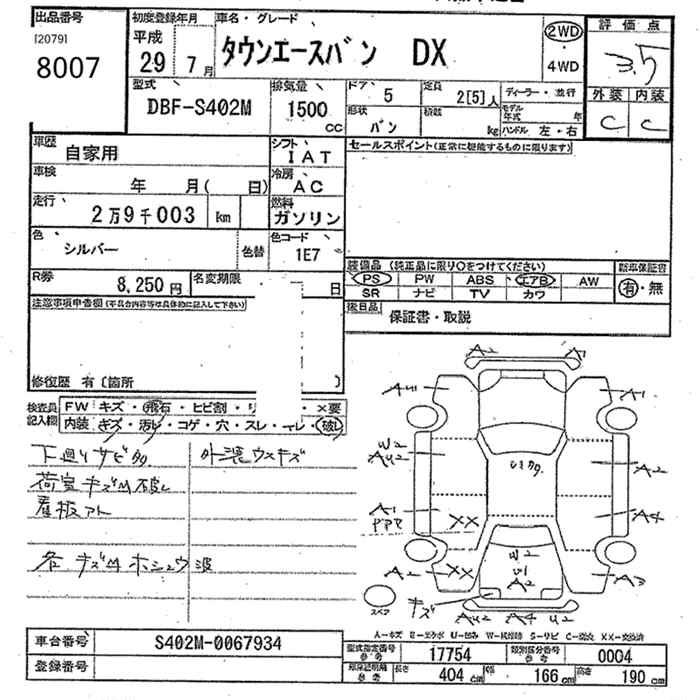 出品番号
[2079]
8007
初度登録年月
平成
29 7月
車名・グレード
タウンエースバン DX
2WD
4WD
評価点
3.5
外装 内装
C C
型式
DBF-S402M
排気量
1500
CC
ドア
5
形状
バン
定員
2[5]人
積載
kg
ディーラー・並行
モデル年式 年
ハンドル 左・右
車歴
自家用
シフト
IAT
車検
年 月( 日)
冷房
AC
走行
2万9千003 km
燃料
ガソリン
色
シルバー
色替
色コード
1E7
R券
8,250円
名変期限
日
セールスポイント(正常に機能するものに限ります)
装備品 (純正品に限り○をつけてください)
PS PW ABS エアB AW
SR ナビ TV カワ
新車保証書
有・無
後日品
保証書・取説
注意事項申告欄(不具合内容等は具体的に記入して下さい)
修復歴 有〔箇所 〕
検査員
記入欄
FW キズ・飛石・ヒビ割・リ ・×要
内装 キズ・汚れ・コゲ・穴・スレ・ ・破れ
下廻りサビ多
荷室キズM
看板アト
外装ウスキズ
各キズMホシュウ
A2 A1
AU1 A1
W2
AU2 A2
A1 XX A4
PPR
A2 XX A3
W2
U1
A2
キズ
スペア
AU2 A4 U2
A-キズ E-エクボ U-凹み W-補修跡 S-サビ C-腐食 XX-交換済
車台番号
S402M-0067934
登録番号
型式指定番号
参考
17754
類別区分番号
参考
0004
参考
長さ
404 cm
幅
166 cm
高さ
190 cm